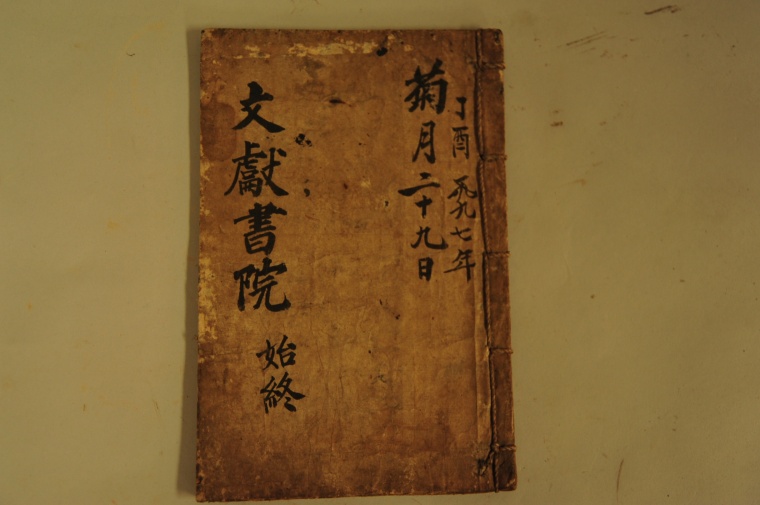 丁酉 一八九七年
菊月二十九日
文獻書院
始終